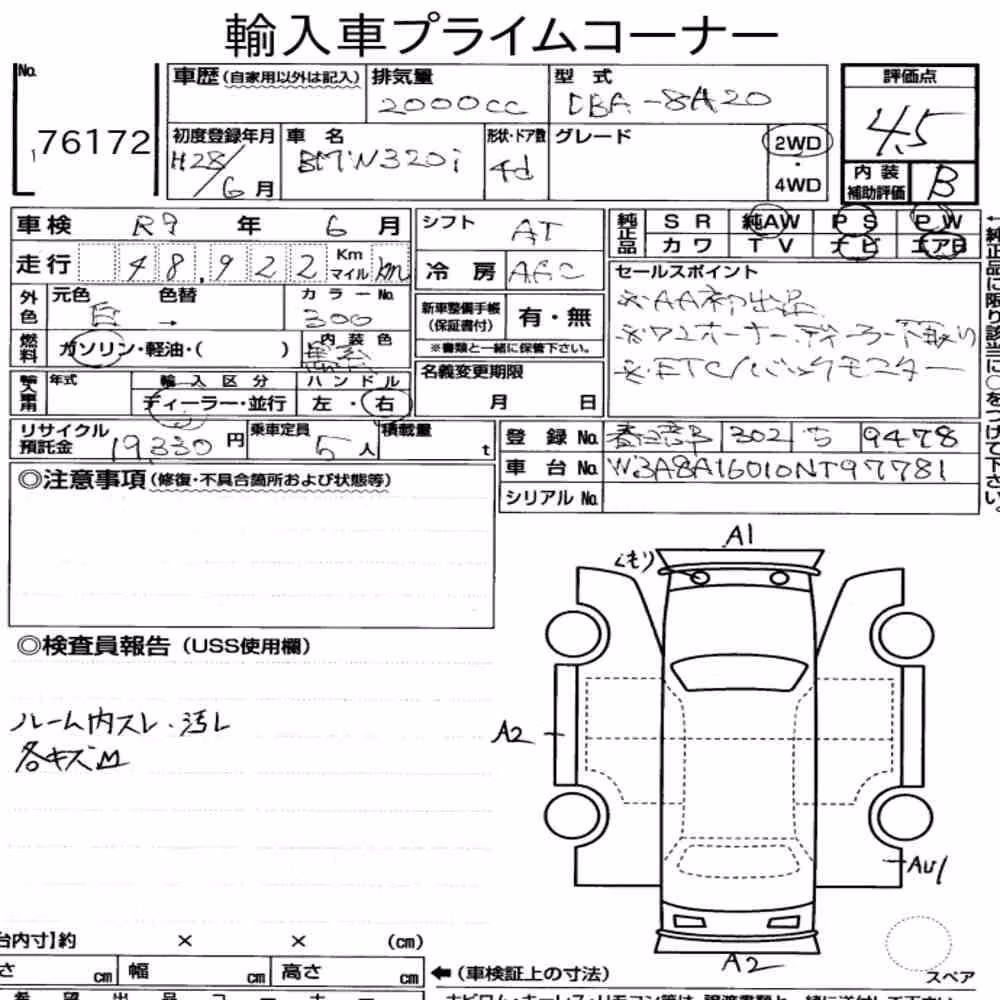 輸入車プライムコーナー
No. 76172
車歴(自家用以外は記入) 排気量 2000cc 型式 DBA-8A20 評価点 4.5
初度登録年月 H28/6月 車名 BMW320i 形状・ドア数 4d グレード 2WD・4WD 内装補助評価 B
車検 R9年 6月 シフト AT 純正品 SR 純AW PS PW
カワ TV ナビ エアB
走行 48,922 Km マイル km 冷房 AAC
セールスポイント
※AA初出品
※ワンオーナー ディーラー下取り
※ETC/バックモニター
外色 元色 白 色替 → カラーNo. 300
新車整備手帳(保証書付) 有・無
※書類と一緒に保管下さい。
燃料 ガソリン・軽油・( ) 内装色 黒系
名義変更期限 月 日
輸入車用 年式 輸入区分 ディーラー・並行 ハンドル 左・右
リサイクル預託金 19,330円 乗車定員 5人 積載量 t
登録No. 302 ち 9478
車台No. W3A8A16010NT97781
シリアルNo.
←純正品に限り該当に○をつけて下さい。
◎注意事項(修復・不具合箇所および状態等)
◎検査員報告(USS使用欄)
ルーム内スレ・汚レ
各キズM
A1
くもり
A2
AU1
A2
スペア
台内寸】約 × × (cm)
さ cm 幅 cm 高さ cm
←(車検証上の寸法)
希望出品コーナー